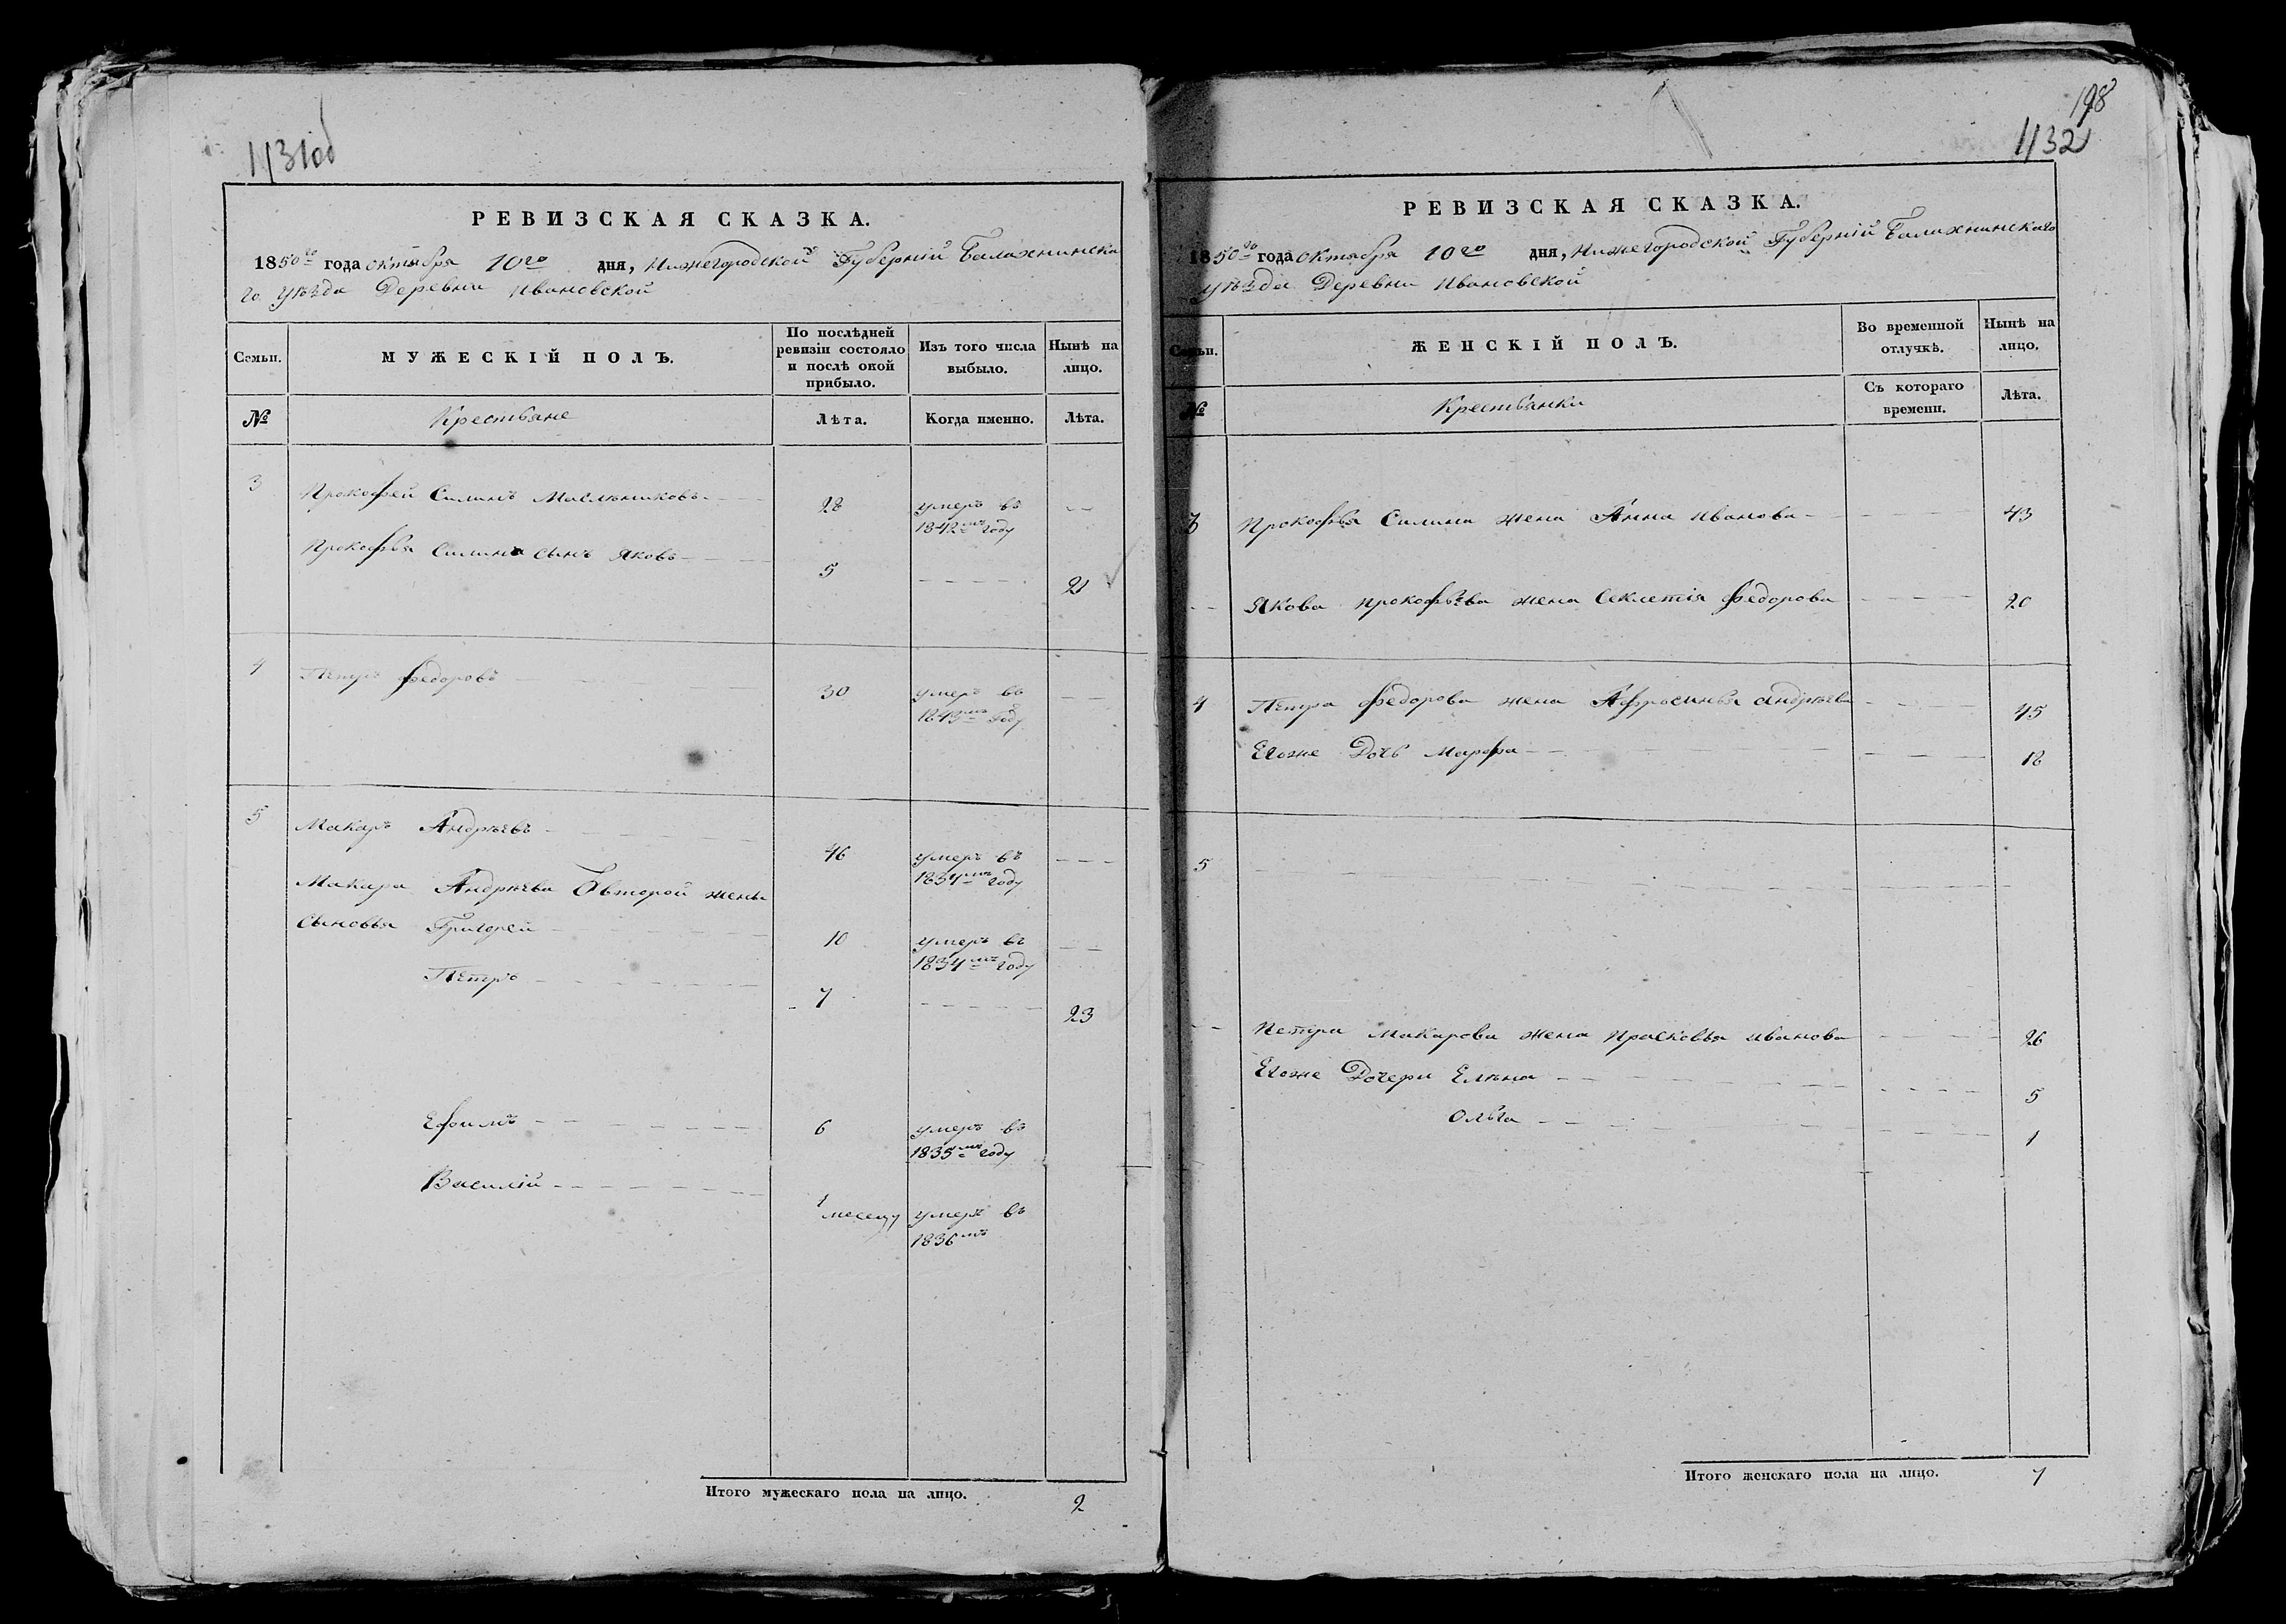 1131об
РЕВИЗСКАЯ СКАЗКА.
1850го года октября 10го дня, Нижегородской Губерніи Балахнинска
го уѣзда Деревни Ивановской
Семьи.
МУЖЕСКІЙ ПОЛЪ.
По послѣдней
ревизіи состояло
и послѣ оной
прибыло.
Изъ того числа
выбыло.
Нынѣ на
лицо.
№
Крестьяне
Лѣта.
Когда именно.
Лѣта.
3
Прокофей Силинъ Мисльниковъ
28
умеръ въ
1842мъ году
Прокофья Силина сынъ Яковъ
5
21
4
Петръ Федоровъ
30
умеръ въ
1843мъ году
5
Макаръ Андрѣевъ
46
умеръ въ
1834мъ году
Макара Андрѣева Ѿвторой жены
сыновья Григорей
10
умеръ въ
1834мъ году
Петръ
7
23
Ефимъ
6
умеръ въ
1835мъ году
Василій
1 месецу
умеръ въ
1836мъ
Итого мужескаго пола на лицо.
2
198
1132
РЕВИЗСКАЯ СКАЗКА.
1850го года октября 10го дня, Нижегородской Губерніи Балахнинскаго
уѣзда Деревни Ивановской
Семьи.
ЖЕНСКІЙ ПОЛЪ.
Во временной
отлучкѣ.
Нынѣ на
лицо.
№
Крестьянки
Съ котораго
времени.
Лѣта.
3
Прокофья Силина жена Анна Иванова
43
Якова Прокофьева жена Секлетія Федорова
20
4
Петра Федорова жена Афросинья Андрѣева
45
Егоже Дочь Марфа
18
5
Петра Макарова жена Прасковья Иванова
26
Егоже Дочери Елѣна
5
Ольга
1
Итого женскаго пола на лицо.
7